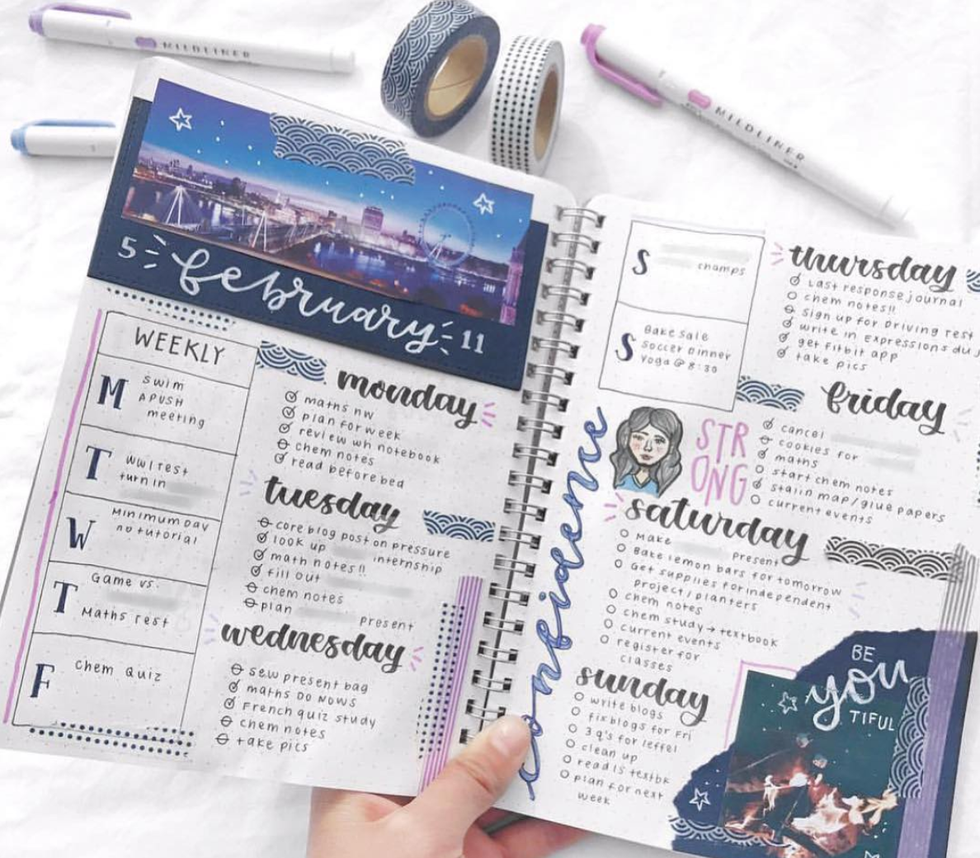 MILDLINER
MILDLINER
5 february 11
WEEKLY
M
swim
APUSH
meeting
T
WW1 test
turn in
W
Minimum Day
no tutorial
T
Game vs.
Maths test
F
Chem Quiz
monday
maths hw
plan for week
review wh notebook
chem notes
read before bed
tuesday
core blog post on pressure
look up internship
math notes!!
fill out
chem notes
plan present
wednesday
sew present bag
maths DO NOWS
French quiz study
chem notes
take pics
S
champs
S
Bake Sale
Soccer Dinner
Yoga @ 8:30
confidence
STR
ONG
thursday
Last response journal
chem notes!!
Sign up for Driving test
write in expressions du
get fitbit app
take pics
friday
cancel
cookies for
maths
start chem notes
stalin map/glue papers
current events
saturday
Make present
Bake lemon bars for tomorrow
Get supplies for independent
project/planters
chem notes
chem study → textbook
current events
register for
classes
sunday
write blogs
fix blogs for Fri
3 q's for leffel
clean up
read IS textbk
plan for next
week
BE
you
TIFUL